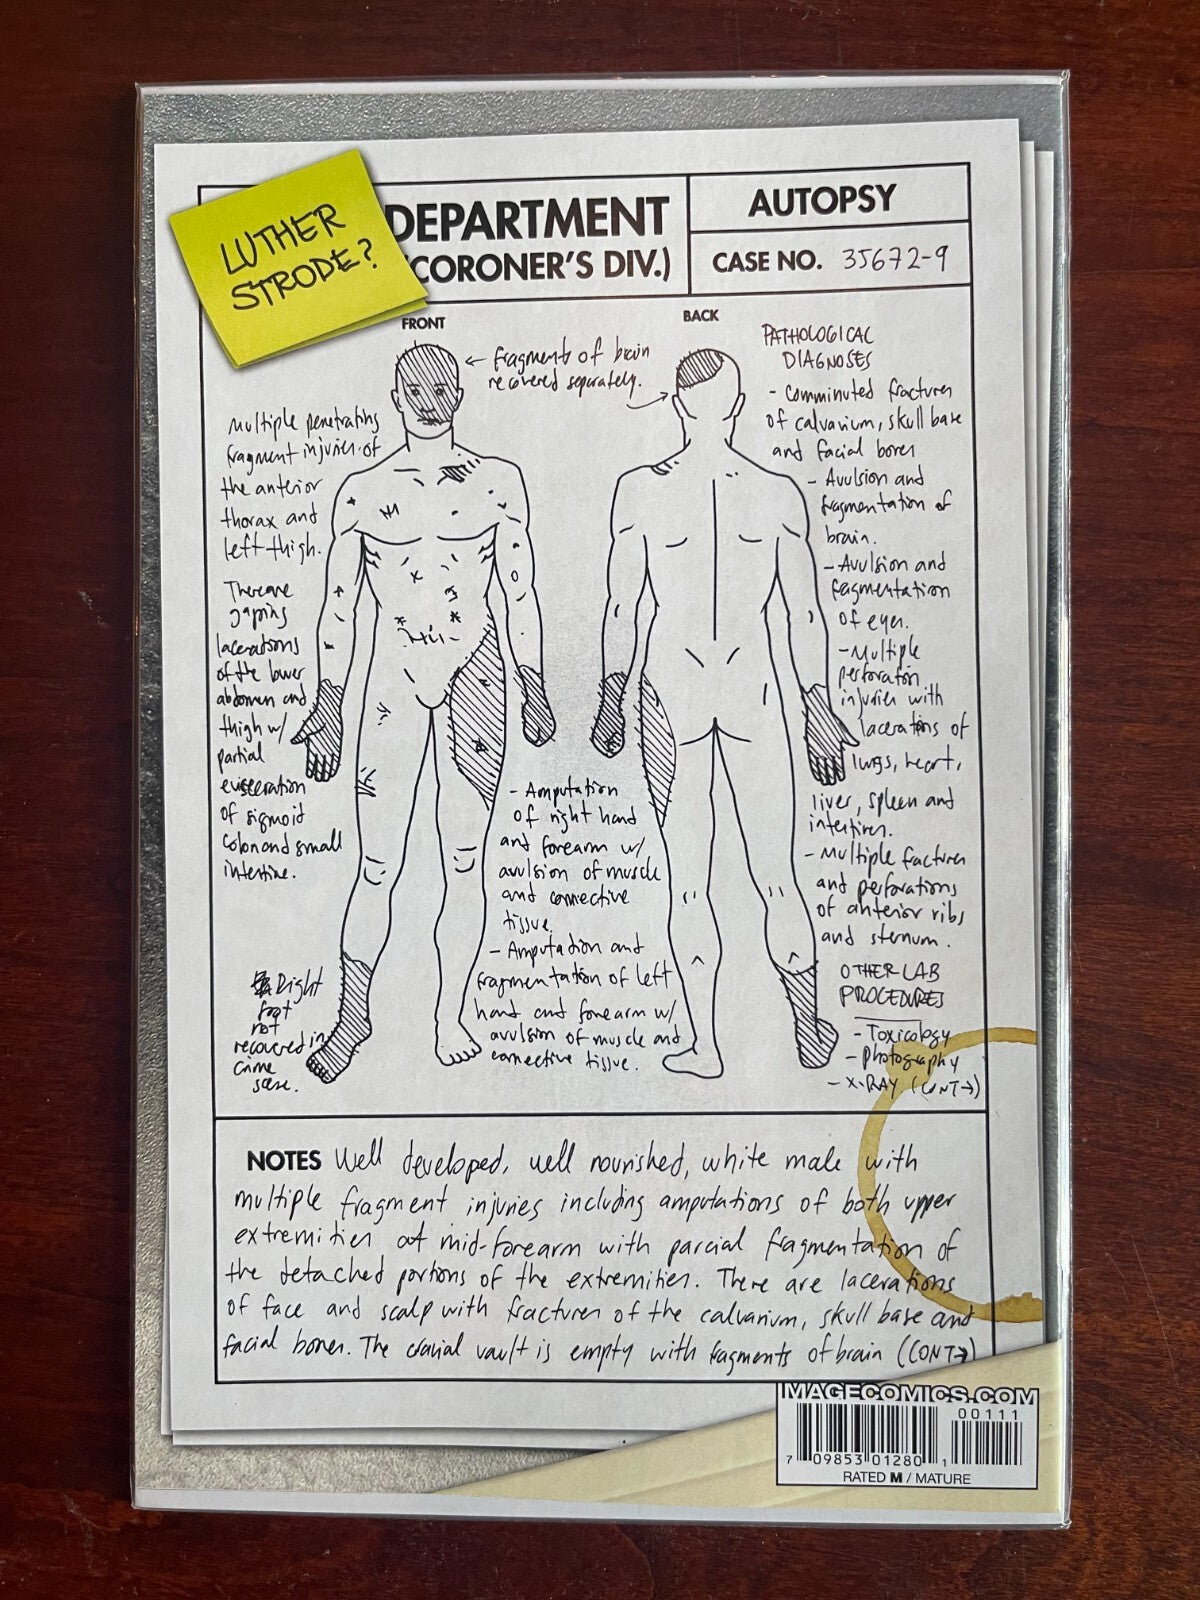 LUTHER
STRODE?
DEPARTMENT
(CORONER'S DIV.)
AUTOPSY
CASE NO. 35672-9
FRONT
BACK
← fragments of brain
recovered separately.
Multiple penetrating
fragment injuries of
the anterior
thorax and
left thigh.
There are
gaping
lacerations
of the lower
abdomen and
thigh w/
partial
evisceration
of sigmoid
colon and small
intestine.
Right
foot
not
recovered in
crime
scene.
- Amputation
of right hand
and forearm w/
avulsion of muscle
and connective
tissue.
- Amputation and
fragmentation of left
hand and forearm w/
avulsion of muscle and
connective tissue.
PATHOLOGICAL
DIAGNOSES
- Comminuted fractures
of calvarium, skull base
and facial bones
- Avulsion and
fragmentation of
brain.
- Avulsion and
fragmentation
of eyes.
- Multiple
perforation
injuries with
lacerations of
lungs, heart,
liver, spleen and
intestines.
- Multiple fractures
and perforations
of anterior ribs
and sternum.
OTHER LAB
PROCEDURES
- Toxicology
- Photography
- X-RAY (CONT→)
NOTES Well developed, well nourished, white male with
multiple fragment injuries including amputations of both upper
extremities at mid-forearm with parcial fragmentation of
the detached portions of the extremities. There are lacerations
of face and scalp with fractures of the calvarium, skull base and
facial bones. The cranial vault is empty with fragments of brain (CONT→)
IMAGECOMICS.COM
00111
7 09853 01280 1
RATED M / MATURE